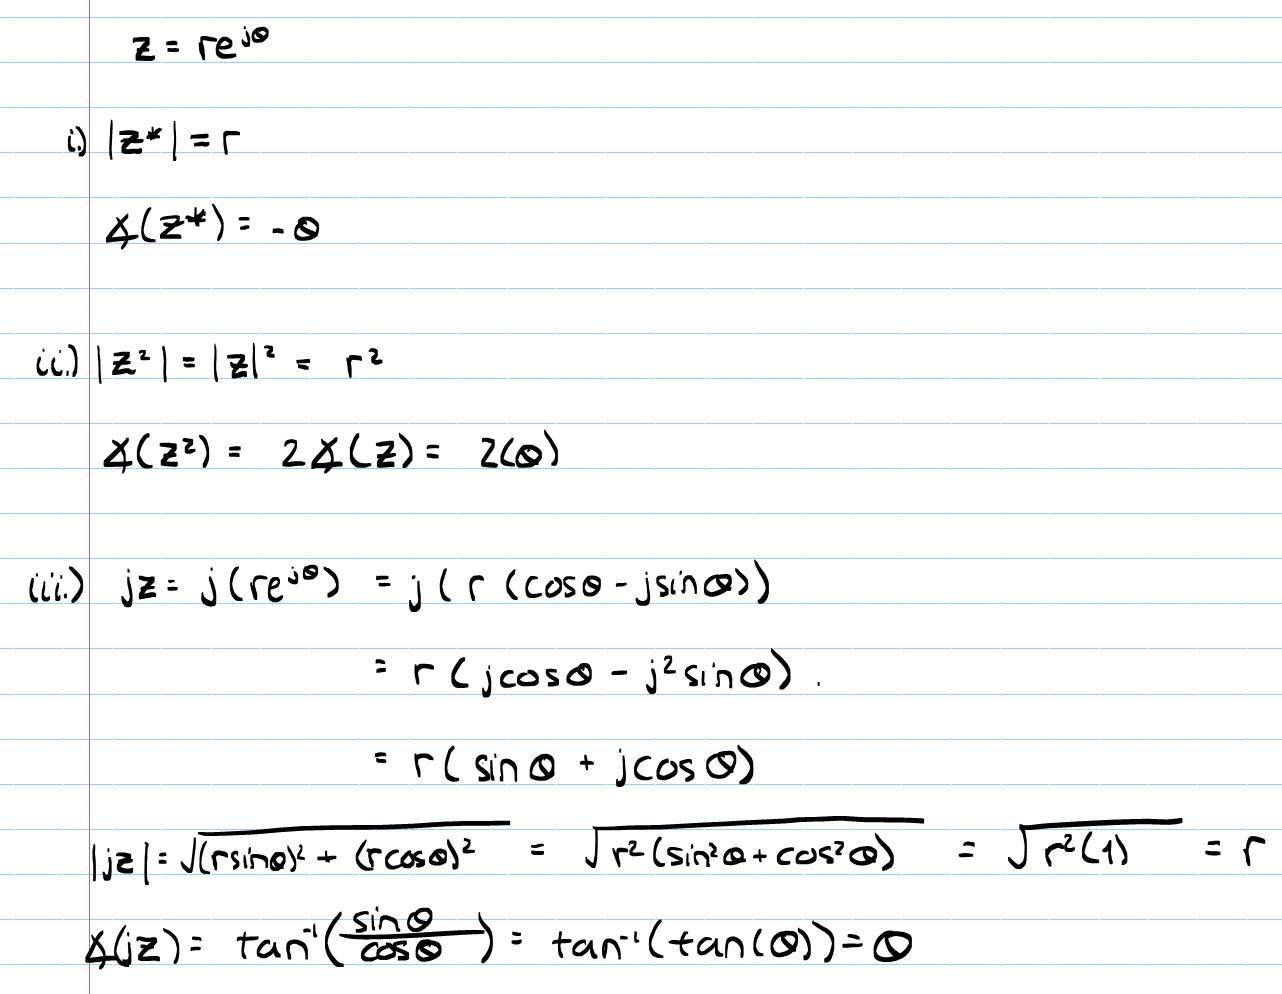 z = re^{jθ}
i.) |z*| = r
∡(z*) = -θ
ii.) |z²| = |z|² = r²
∡(z²) = 2∡(z) = 2(θ)
iii.) jz = j(re^{jθ}) = j(r(cosθ - jsinθ))
= r(jcosθ - j²sinθ).
= r(sinθ + jcosθ)
|jz| = √((rsinθ)² + (rcosθ)²) = √(r²(sin²θ + cos²θ)) = √(r²(1)) = r
∡(jz) = tan⁻¹(sinθ/cosθ) = tan⁻¹(tan(θ)) = θ